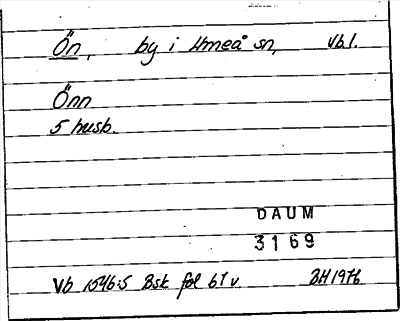 Ön, by i Umeå sn, Vb l.
Önn
5 husb.
DAUM
3169
Vb 1546:5 Bsk fol 61 v. BH 1976